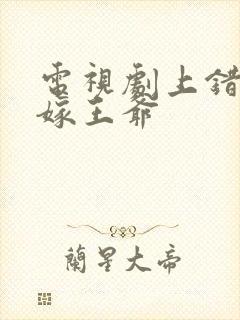 電視劇上錯
嫁王爺
蘭星大帝